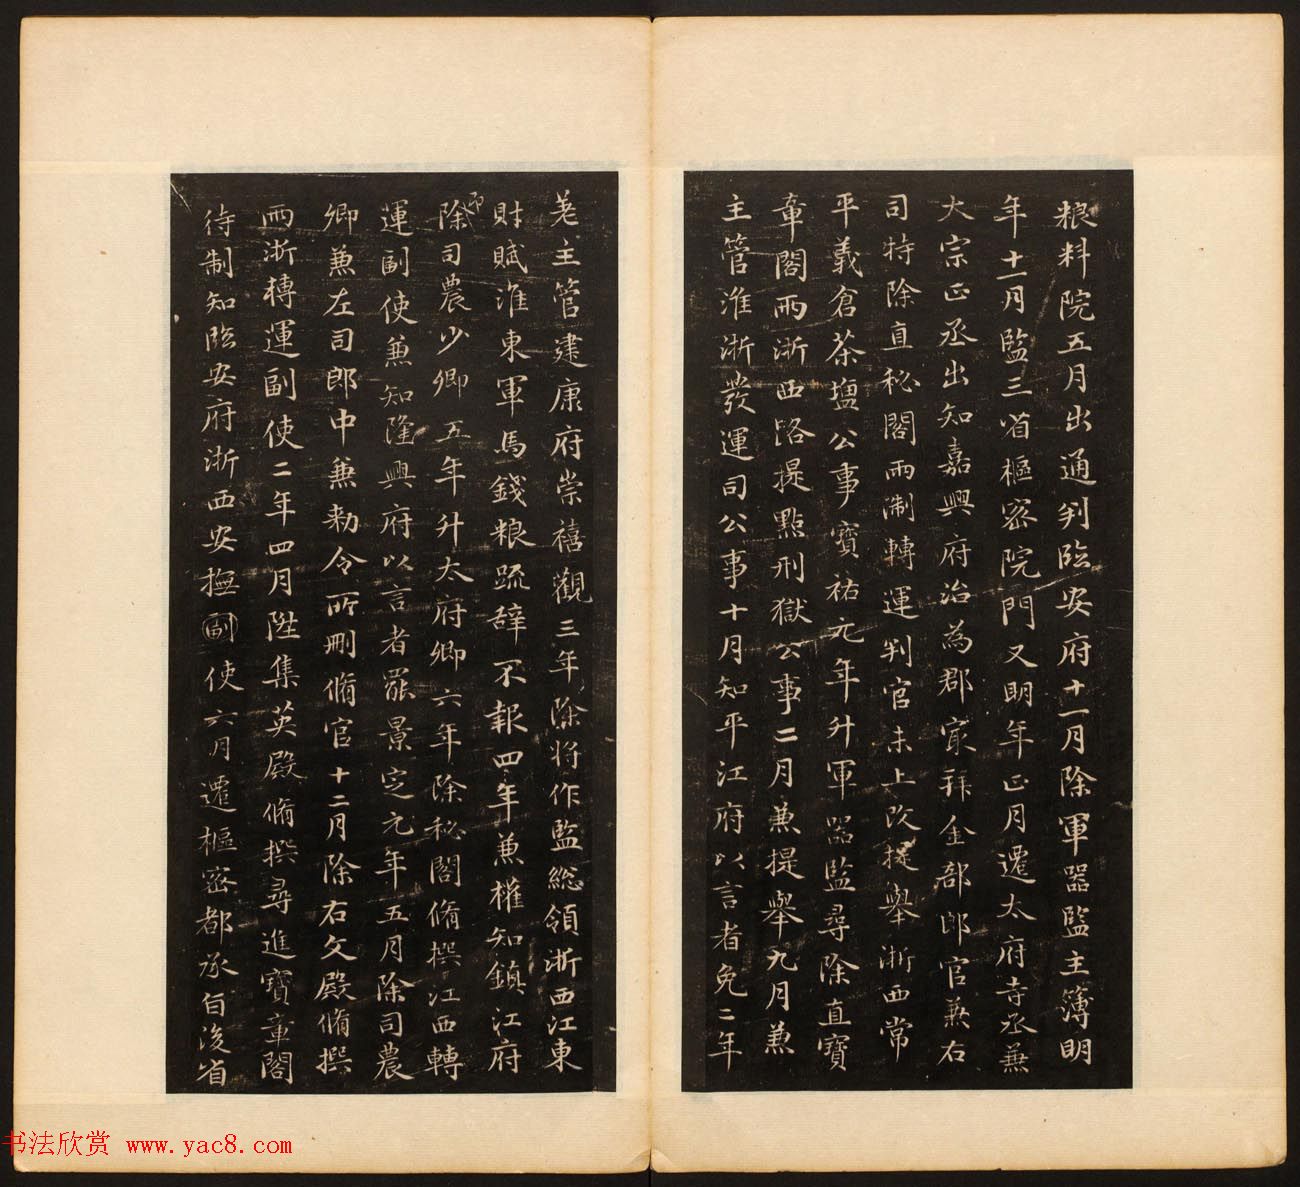 粮料院五月出通判臨安府十一月除軍器監主簿明
年十一月監三省樞密院門又明年正月遷太府寺丞兼
大宗正丞出知嘉興府治為郡最拜金部郎官兼右
司特除直秘閣兩淛轉運判官未上改提舉浙西常
平義倉茶鹽公事寶祐元年升軍器監尋除直寶
章閣兩浙西路提點刑獄公事二月兼提舉九月兼
主管淮浙發運司公事十月知平江府以言者免二年
差主管建康府崇禧觀三年除將作監總領浙西江東
財賦淮東軍馬錢粮疏辞不報四年兼權知鎮江府
除司農少卿五年升太府卿六年除秘閣脩撰江西轉
運副使兼知隆興府以言者罷景定元年五月除司農
卿兼左司郎中兼勑令所刪脩官十二月除右文殿脩撰
兩浙轉運副使二年四月陞集英殿脩撰尋進寶章閣
待制知臨安府浙西安撫副使六月遷樞密都承旨後省
书法欣赏 www.yac8.com